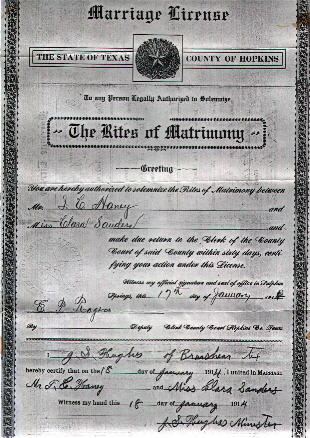 Marriage License
THE STATE OF TEXAS COUNTY OF HOPKINS
To any Person Legally Authorized to Solemnize
The Rites of Matrimony
Greeting
You are hereby authorized to solemnize the Rites of Matrimony between
Mr. J. E. Haney and
Miss Clara Sanders and
make due return to the Clerk of the County
Court of said County within sixty days, certi
fying your action under this License.
Witness my official signature and seal of office in Sulphur
Springs, the 17th day of January 191
E. P.
By Deputy Clerk County Court Hopkins Co. Texas
I J. S. Hughes of Brashear Tex
hereby certify that on the 18 day of January 1914, I united in Marriage
Mr. J. E. Haney and Miss Clara Sanders
Witness my hand this 18 day of January 1914
J. S. Hughes Minister